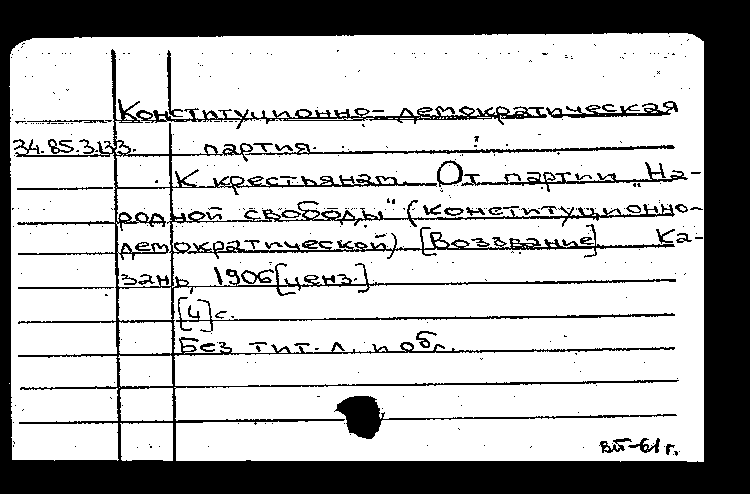 Конституционно-демократическая
34.85.3.133. партия.
К крестьянам. От партии „На-
родной свободы" (конституционно-
демократической) [Воззвание] Ка-
зань, 1906 [ценз.]
[4] с.
Без тит. л. и обл.
ВП-61 г.